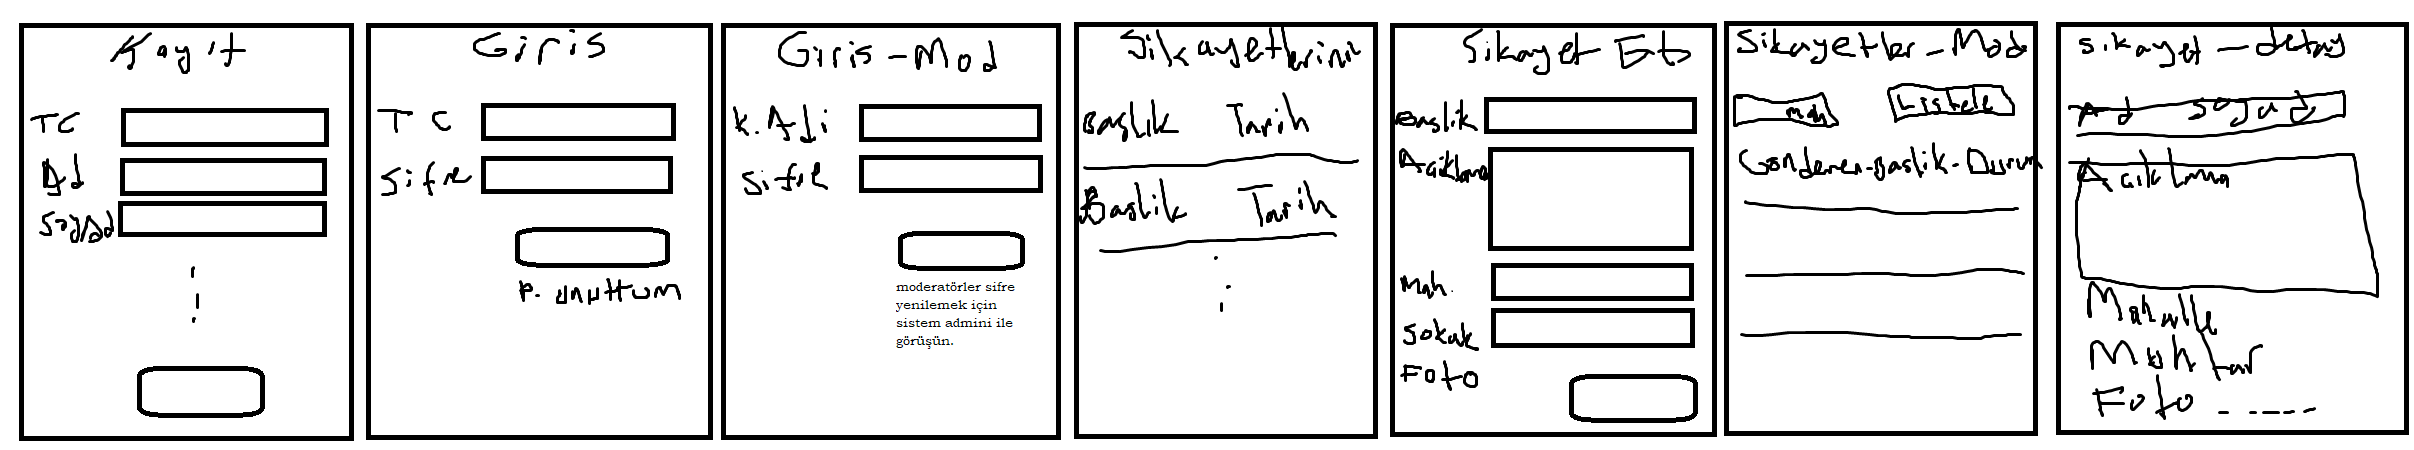 Kayit
TC
Ad
Soyad
Giris
TC
Sifre
P. unuttum
Giris-Mod
K. Adi
Sifre
moderatörler sifre
yenilemek için
sistem admini ile
görüşün.
Sikayetlerini
Baslik Tarih
Baslik Tarih
Sikayet Et
Baslik
Aciklama
Mah.
Sokak
Foto
Sikayetler-Mod
mah Listele
Gonderen-Baslik-Durum
Sikayet-detay
Ad Soyad
Aciklama
Mahalle
Muhtar
Foto -----